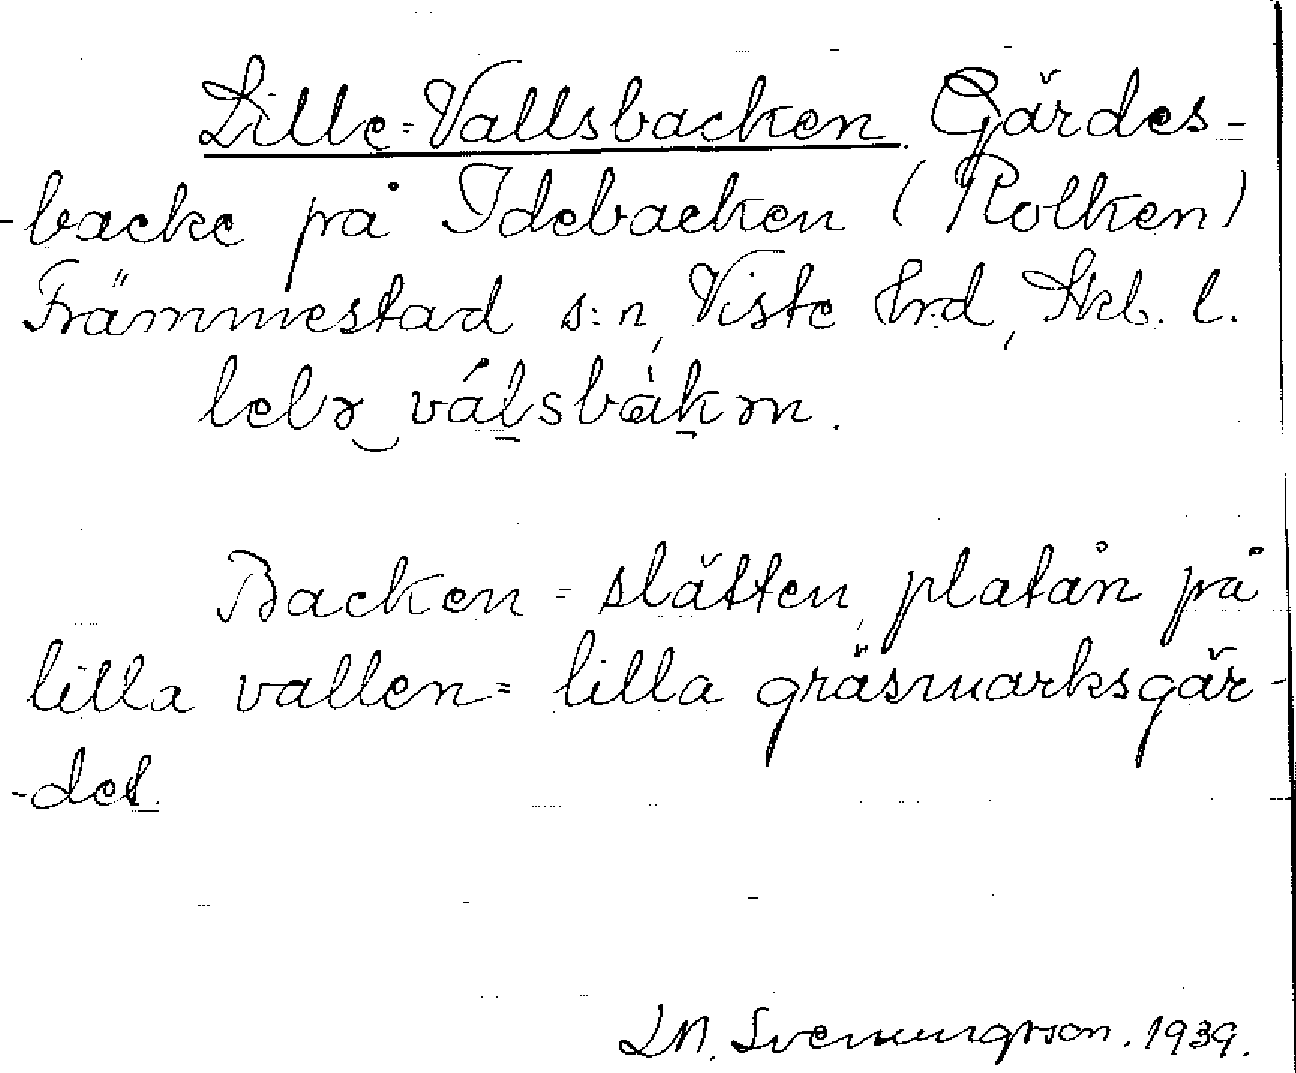 Lille-Vallsbacken. Gärdes-
-backe på Idebacken (Rolken)
Främmestad s:n, Viste Hrd, Skb. l.
Backen = slätten, platån på
lilla vallen = lilla gräsmarksgär-
-det.
L.M. Svenungsson. 1939.